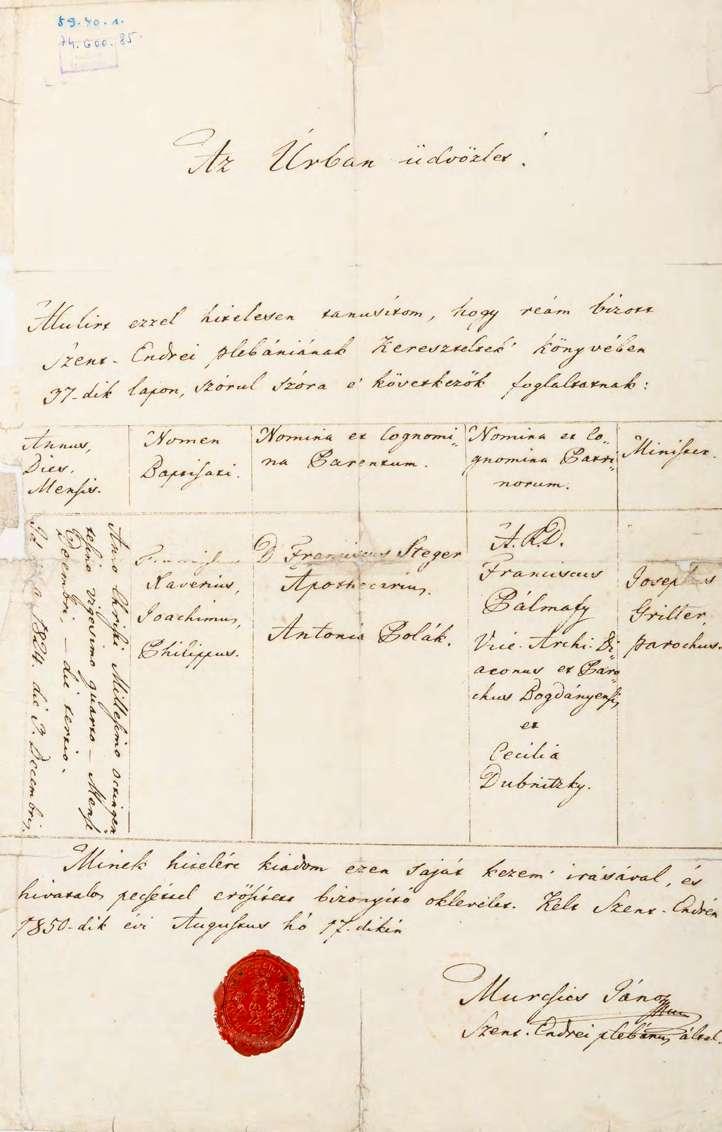 59.40.1.
74.600.85.
Az Úrban üdvözlet!
Alulirt ezzel hitelesen tanusítom, hogy reám bizott
Szent-Endrei plébániának Kereszteltek' könyvében
37-dik lapon, szórul szóra e' következők foglaltatnak:
Annus,
Dies,
Mensis.
Nomen
Baptisati.
Nomina et Cognomi-
na Parentum.
Nomina et Co-
gnomina Patri-
norum.
Minister.
Anno Christi Millesimo octingen
tesimo vigesimo quarto – Mensi
Decembri, – die tertio.
a 1824 die 3. Decembris,
Xaverius,
Joachimus,
Philippus.
D Franciscus Steger
Apothecarius,
Antonia Polák.
A.R.D.
Franciscus
Pálmafy
Vice-Archi Di-
aconus et Paro-
chus Bogdányensis,
et
Cecilia
Dubnitzky.
Josephus
Gritter,
parochus.
Minek hitelére kiadom ezen saját kezem' irásával, és
hivatalos pecséttel erősített bizonyító oklevelet. Kelt Szent-Endrén
1850-dik évi Augustus hó 17-dikén
Murcsics János
Szent-Endrei plébánus által.